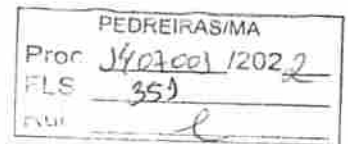 PEDREIRAS/MA
Proc. 1407001 /2022
FLS 351